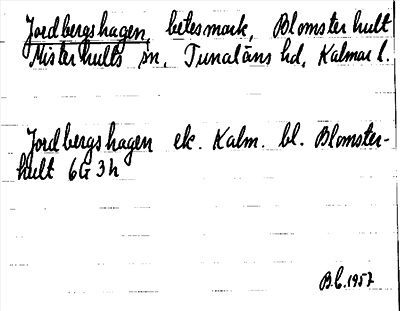 Jordbergshagen, betesmark, Blomsterhult
Misterhults sn, Tunaläns hd, Kalmar l.
Jordbergshagen ek. Kalm. bl. Blomster-
hult 6G 3h
B.C. 1957